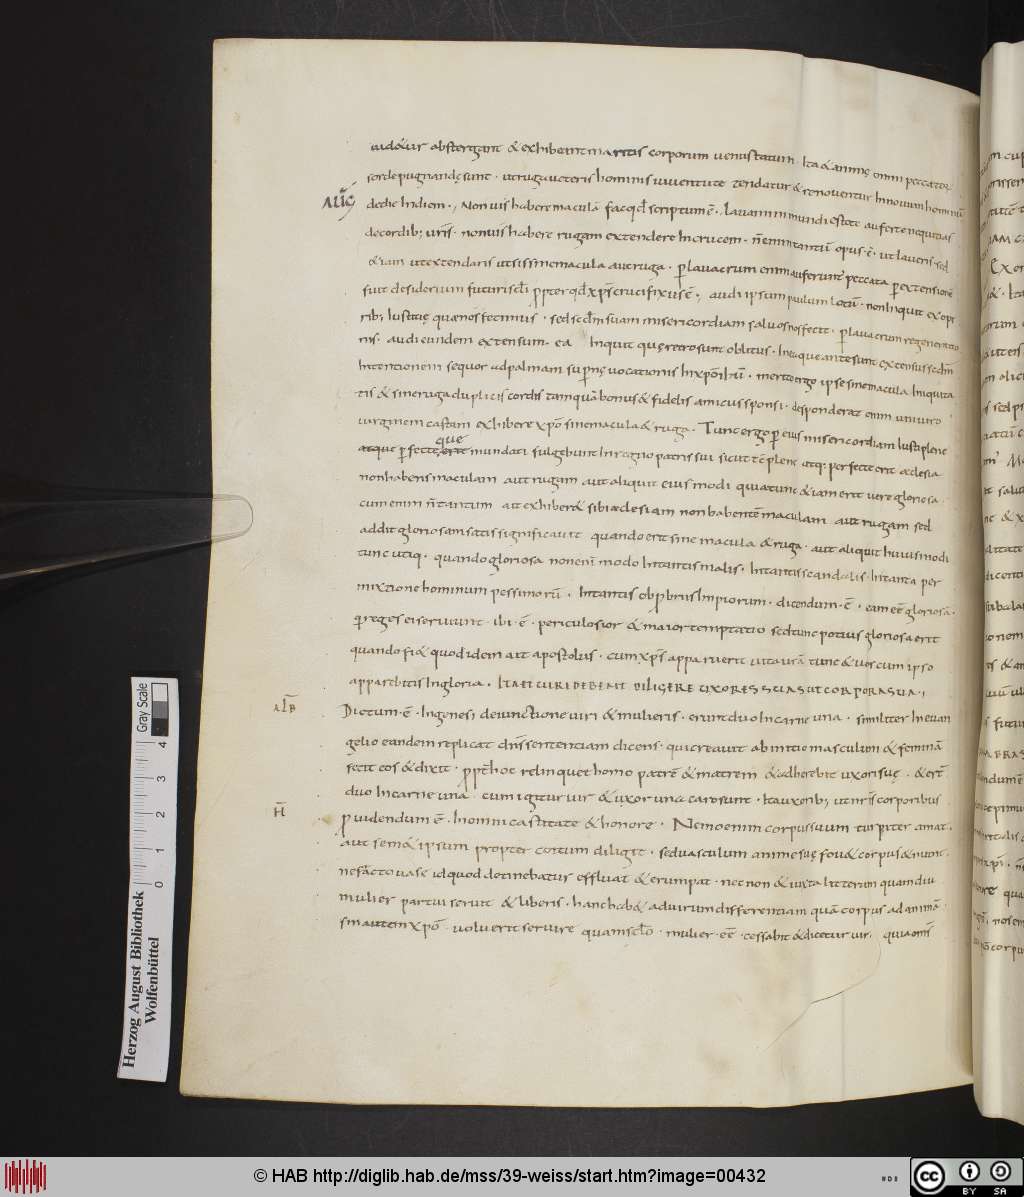 uideatur abstergant & exhibeant maritis corporum uenustatum. Ita & animę omni peccatorum
sorde pugnandę sunt · ut ruga ueteris hominis iuuentute tendatur & renouentur in nouum hominem
AUG̅ de die in diem ·, Non uis habere maculā fac qđ scriptum ē · lauamini mundi estote auferte nequitias
de cordib; uris̄ · non uis habere rugam extendere in crucem · n̄ enim tantū opus · ē · ut laueris · sed
& iam ut extendaris ut sis sine macula aut ruga · p lauacrum enim auferunt̄ peccata p extensione
fiut desiderium futuri scłi ppter qđ xps̄ crucifixus ē ·, audi ipsum paulum lotū · non inquit ex opi
rib; iustitię quæ nos fecimus · sed scdm̄ suam misericordiam saluos nos fecit · p lauacrum regeneratio
nis · audi eundem extensum · ea inquit quę retro sunt oblitus · In ea que ante sunt extensus scdm̄
intentionem sequor ad palmam supnę uocationis in xpō ihū · merito ergo ipse sine macula iniquita
tis & sine ruga duplicis cordis tamquā bonus & fidelis amicus sponsi · desponderat enim uni uiro
uirginem castam exhibere xpō sine macula & ruga · Tunc ergo p eius misericordiam iusti plene
atque pfecteque erit mundati fulgebunt in regno patris sui sicut tc̄ plene utiq; perfecte erit æclesia
non habens maculam aut rugam aut aliquit eius modi quia tunc & iam erit uere gloriosa
cum enim n̄ tantum ait exhiber& sibi æclesiam non habentē maculam aut rugam sed
addit gloriosam satis significauit quando erit sine macula & ruga · aut aliquit huiusmodi
tunc utiq · quando gloriosa non enī modo in tantis malis · in tantis scandalis · in tanta per
mixtione hominum pessimorū · in tantis obpbriis impiorum · dicendum · ē · eam eē gloriosā ·
q reges ei seruiunt · ibi · ē · periculosior & maior temptatio sed tunc potius gloriosa erit
quando fi& quod idem ait apostolus · cum xps̄ apparuerit uita ur̄a tunc & uos cum ipso
apparebitis in gloria · ITA ET UIRI DEBENT DILIGERE UXORES SUAS UT CORPORA SUA ·,
AM̅B Dictum · ē · in genesi de iunctione uiri & mulieris · erunt duo in carne una · similiter in euan
gelio eandem replicat dn̄s sententiam dicens · qui creauit ab initio masculum & feminā
fecit eos & dixit · ppt̄ hoc relinquet homo patrē & matrem & adherebit uxori suę · & ert̄
duo in carne una · cum igitur uir & uxor una caro sunt · Ita uxorib; ut nr̄is corporibus
H̅ puidendum ē · in omni castitate & honore · Nemo enim corpus suum turpiter amat ·
aut sem& ipsum propter coitum diligit · sed uasculum anime suę fou& corpus & nutrit ·
ne fracto uase id quod detinebatur effluat & erumpat · nec non & iuxta litteram quamdiu
mulier partui seruit & liberis · hanc hab& ad uirum differentiam quā corpus ad animā ·
sin autem xpō · uoluerit seruire quam sclō · mulier · eē · cessabit & dicetur uir · quia omī
Herzog August Bibliothek
Wolfenbüttel
Gray Scale
0 1 2 3 4
© HAB http://diglib.hab.de/mss/39-weiss/start.htm?image=00432
cc BY SA